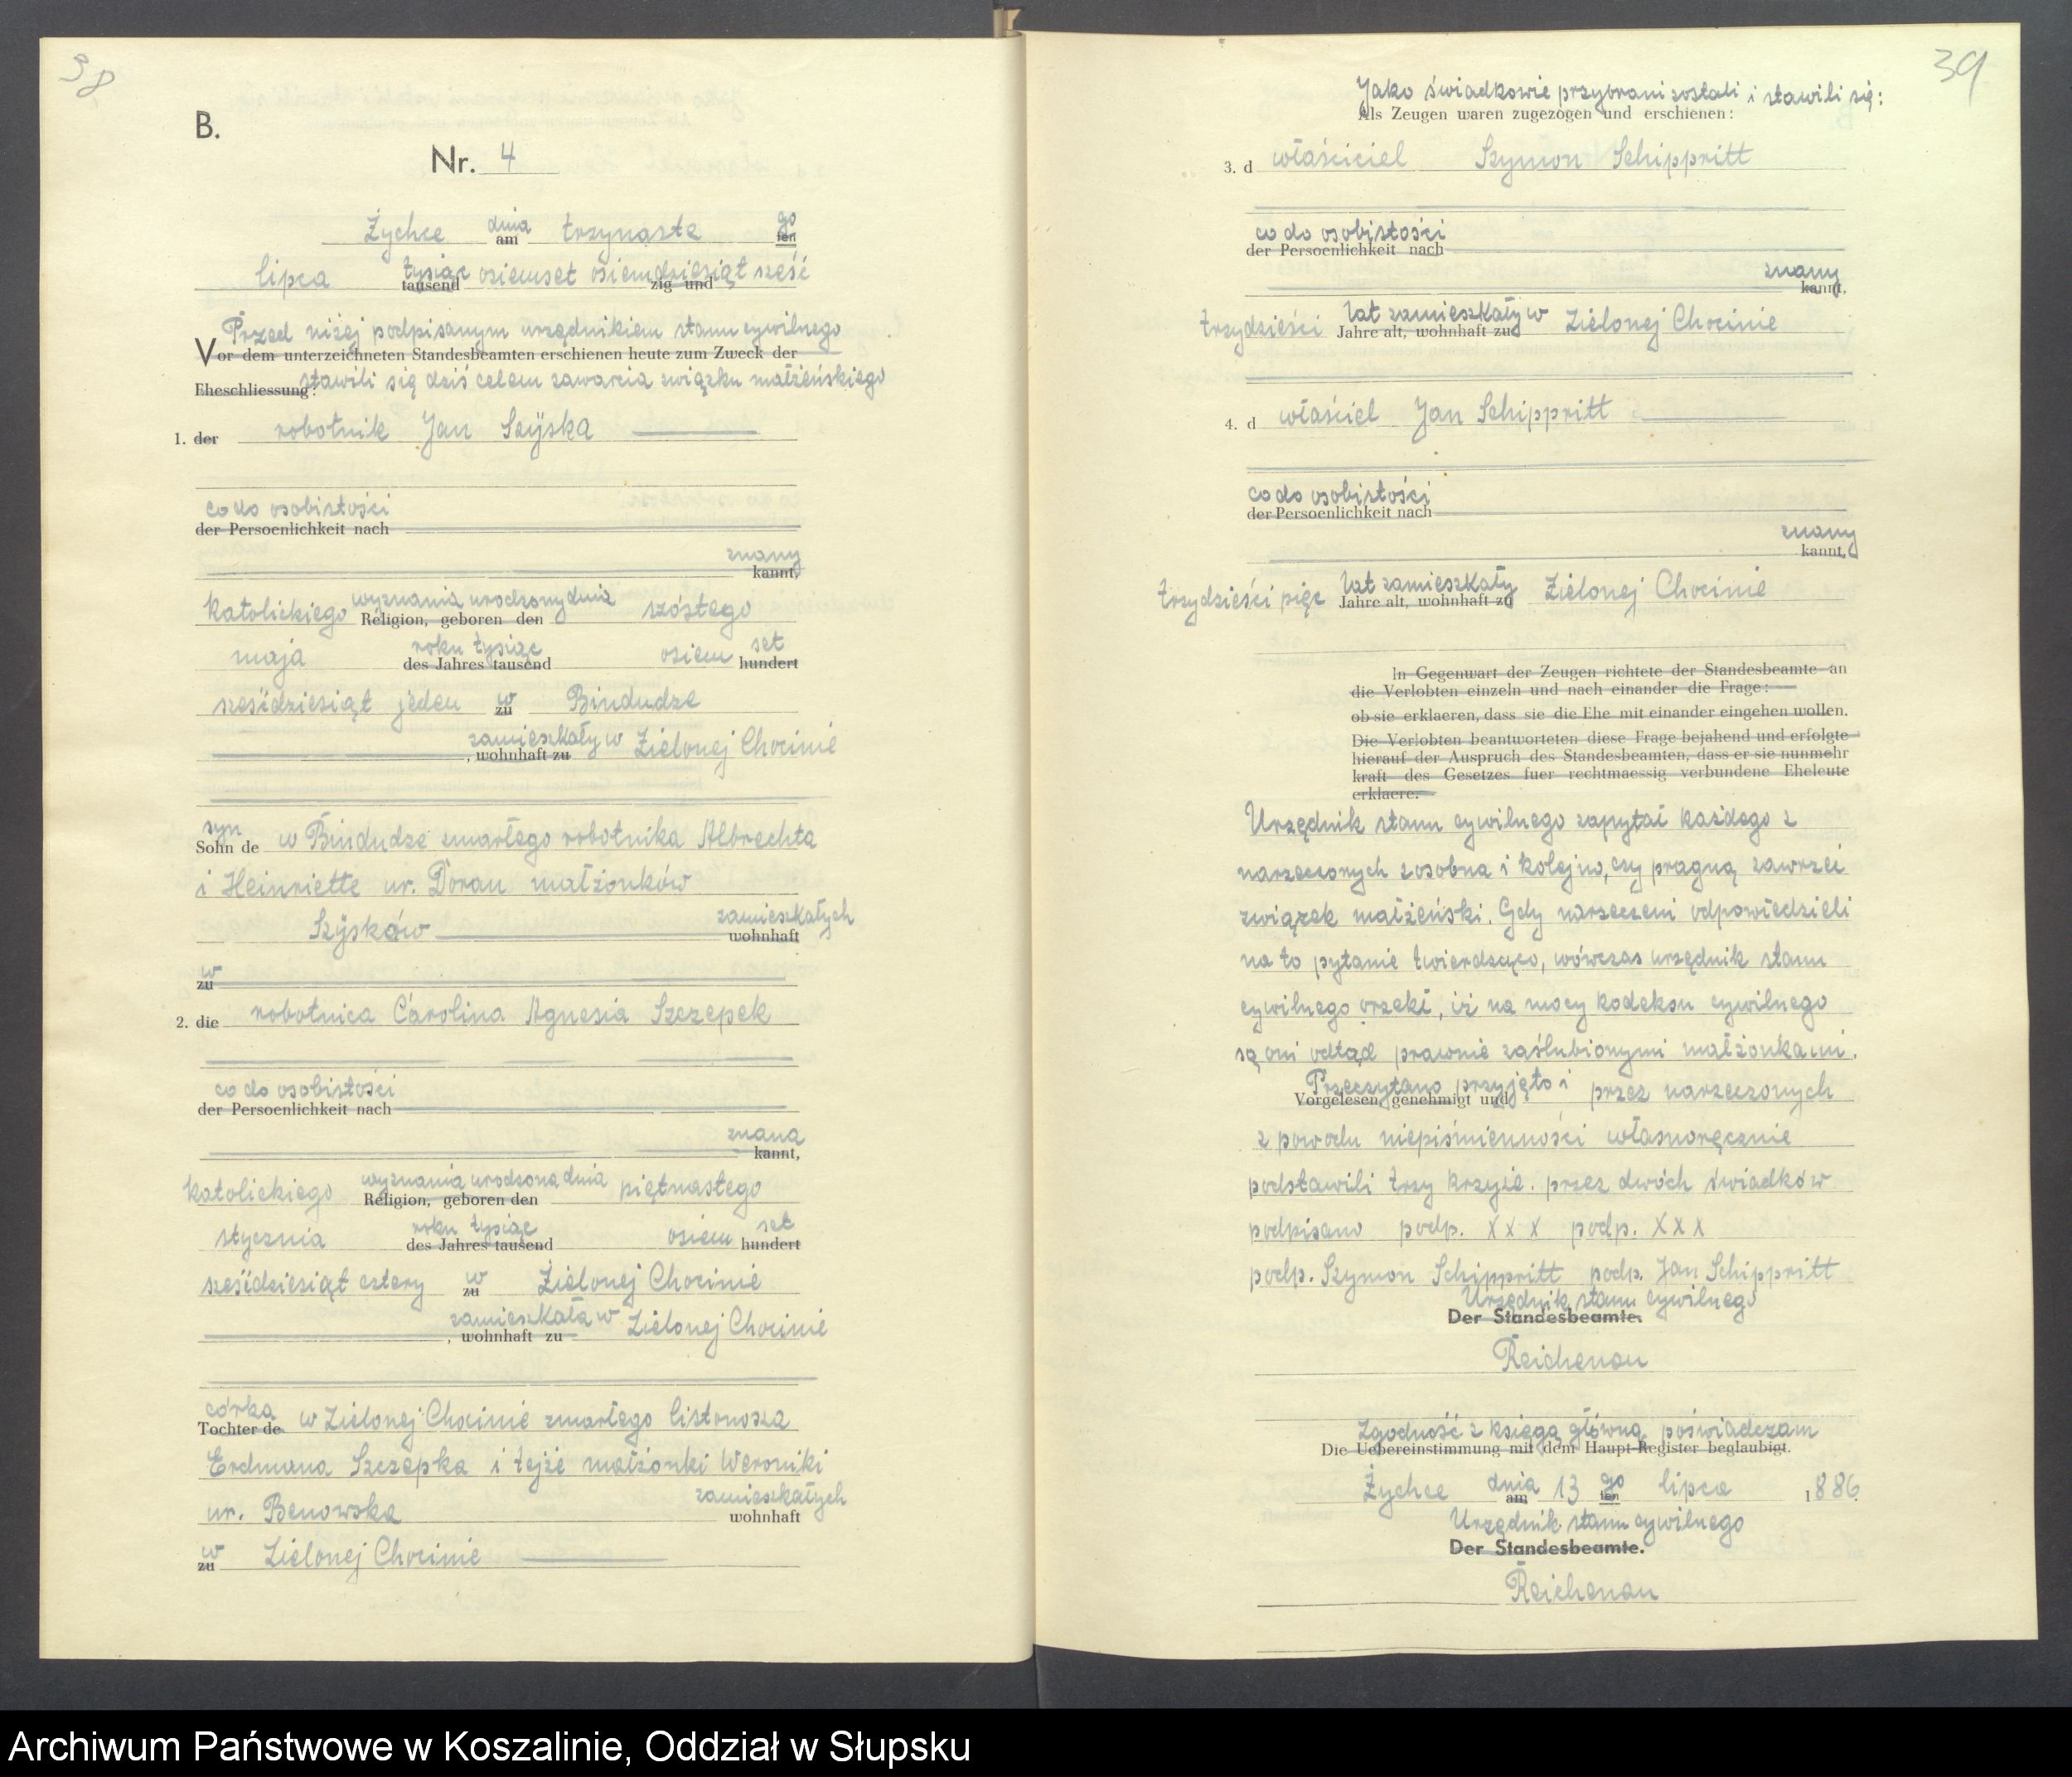 38
B.
Nr. 4
Żychce dnia trzynaste go
am ten
lipca tysiąc osiemset osiemdziesiąt sześć
tausend zig und
Przed niżej podpisanym urzędnikiem stanu cywilnego
Vor dem unterzeichneten Standesbeamten erschienen heute zum Zweck der
stawili się dziś celem zawarcia związku małżeńskiego
Eheschliessung:
1. der robotnik Jan Szÿska
co do osobistości
der Persoenlichkeit nach
znany
kannt,
katolickiego wyznania urodzony dnia szóstego
Religion, geboren den
maja roku tysiąc osiem set
des Jahres tausend hundert
sześćdziesiąt jeden w Bindudze
zu
zamieszkały w Zielonej Chocinie
, wohnhaft zu
syn
Sohn de w Bindudze zmarłego robotnika Albrechta
i Heinriette ur. Doran małżonków
Szÿsków zamieszkałych
wohnhaft
w
zu
2. die robotnica Carolina Agnesia Szczepek
co do osobistości
der Persoenlichkeit nach
znana
kannt,
katolickiego wyznania urodzona dnia piętnastego
Religion, geboren den
stycznia roku tysiąc osiem set
des Jahres tausend hundert
sześćdziesiąt cztery w Zielonej Chocinie
zu
zamieszkała w Zielonej Chocinie
, wohnhaft zu
córka
Tochter de w Zielonej Chocinie zmarłego listonosza
Erdmana Szczepka i tejże małżonki Weroniki
ur. Benowska zamieszkałych
wohnhaft
w Zielonej Chocinie
zu
39
Jako świadkowie przybrani zostali i stawili się:
Als Zeugen waren zugezogen und erschienen:
3. d właściciel Szymon Schippritt
co do osobistości
der Persoenlichkeit nach
znany
kannt,
trzydzieści lat zamieszkały w Zielonej Chocinie
Jahre alt, wohnhaft zu
4. d właściel Jan Schippritt
co do osobistości
der Persoenlichkeit nach
znany
kannt,
trzydzieści pięc lat zamieszkały Zielonej Chocinie
Jahre alt, wohnhaft zu
In Gegenwart der Zeugen richtete der Standesbeamte an
die Verlobten einzeln und nach einander die Frage:
ob sie erklaeren, dass sie die Ehe mit einander eingehen wollen.
Die Verlobten beantworteten diese Frage bejahend und erfolgte
hierauf der Auspruch des Standesbeamten, dass er sie nunmehr
kraft des Gesetzes fuer rechtmaessig verbundene Eheleute
erklaere.
Urzędnik stanu cywilnego zapytał każdego z
narzeczonych zosobna i kolejno, czy pragną zawrzeć
związek małżeński. Gdy narzeczeni odpowiedzieli
na to pytanie twierdząco, wówczas urzędnik stanu
cywilnego orzekł, iż na mocy kodeksu cywilnego
są oni odtąd prawnie zaślubionymi małżonkami.
Przeczytano przyjęto i przez narzeczonych
Vorgelesen genehmigt und
z powodu niepiśmienności własnoręcznie
podstawili trzy krzyże. przez dwóch świadków
podpisano podp. X X X podp. X X X
podp. Szymon Schippritt podp. Jan Schippritt
Urzędnik stanu cywilnego
Der Standesbeamte.
Reichenau
Zgodność z księgą główną poświadczam
Die Uebereinstimmung mit dem Haupt-Register beglaubigt.
Żychce dnia 13 go lipca 1886.
am ten
Urzędnik stanu cywilnego
Der Standesbeamte.
Reichenau
Archiwum Państwowe w Koszalinie, Oddział w Słupsku